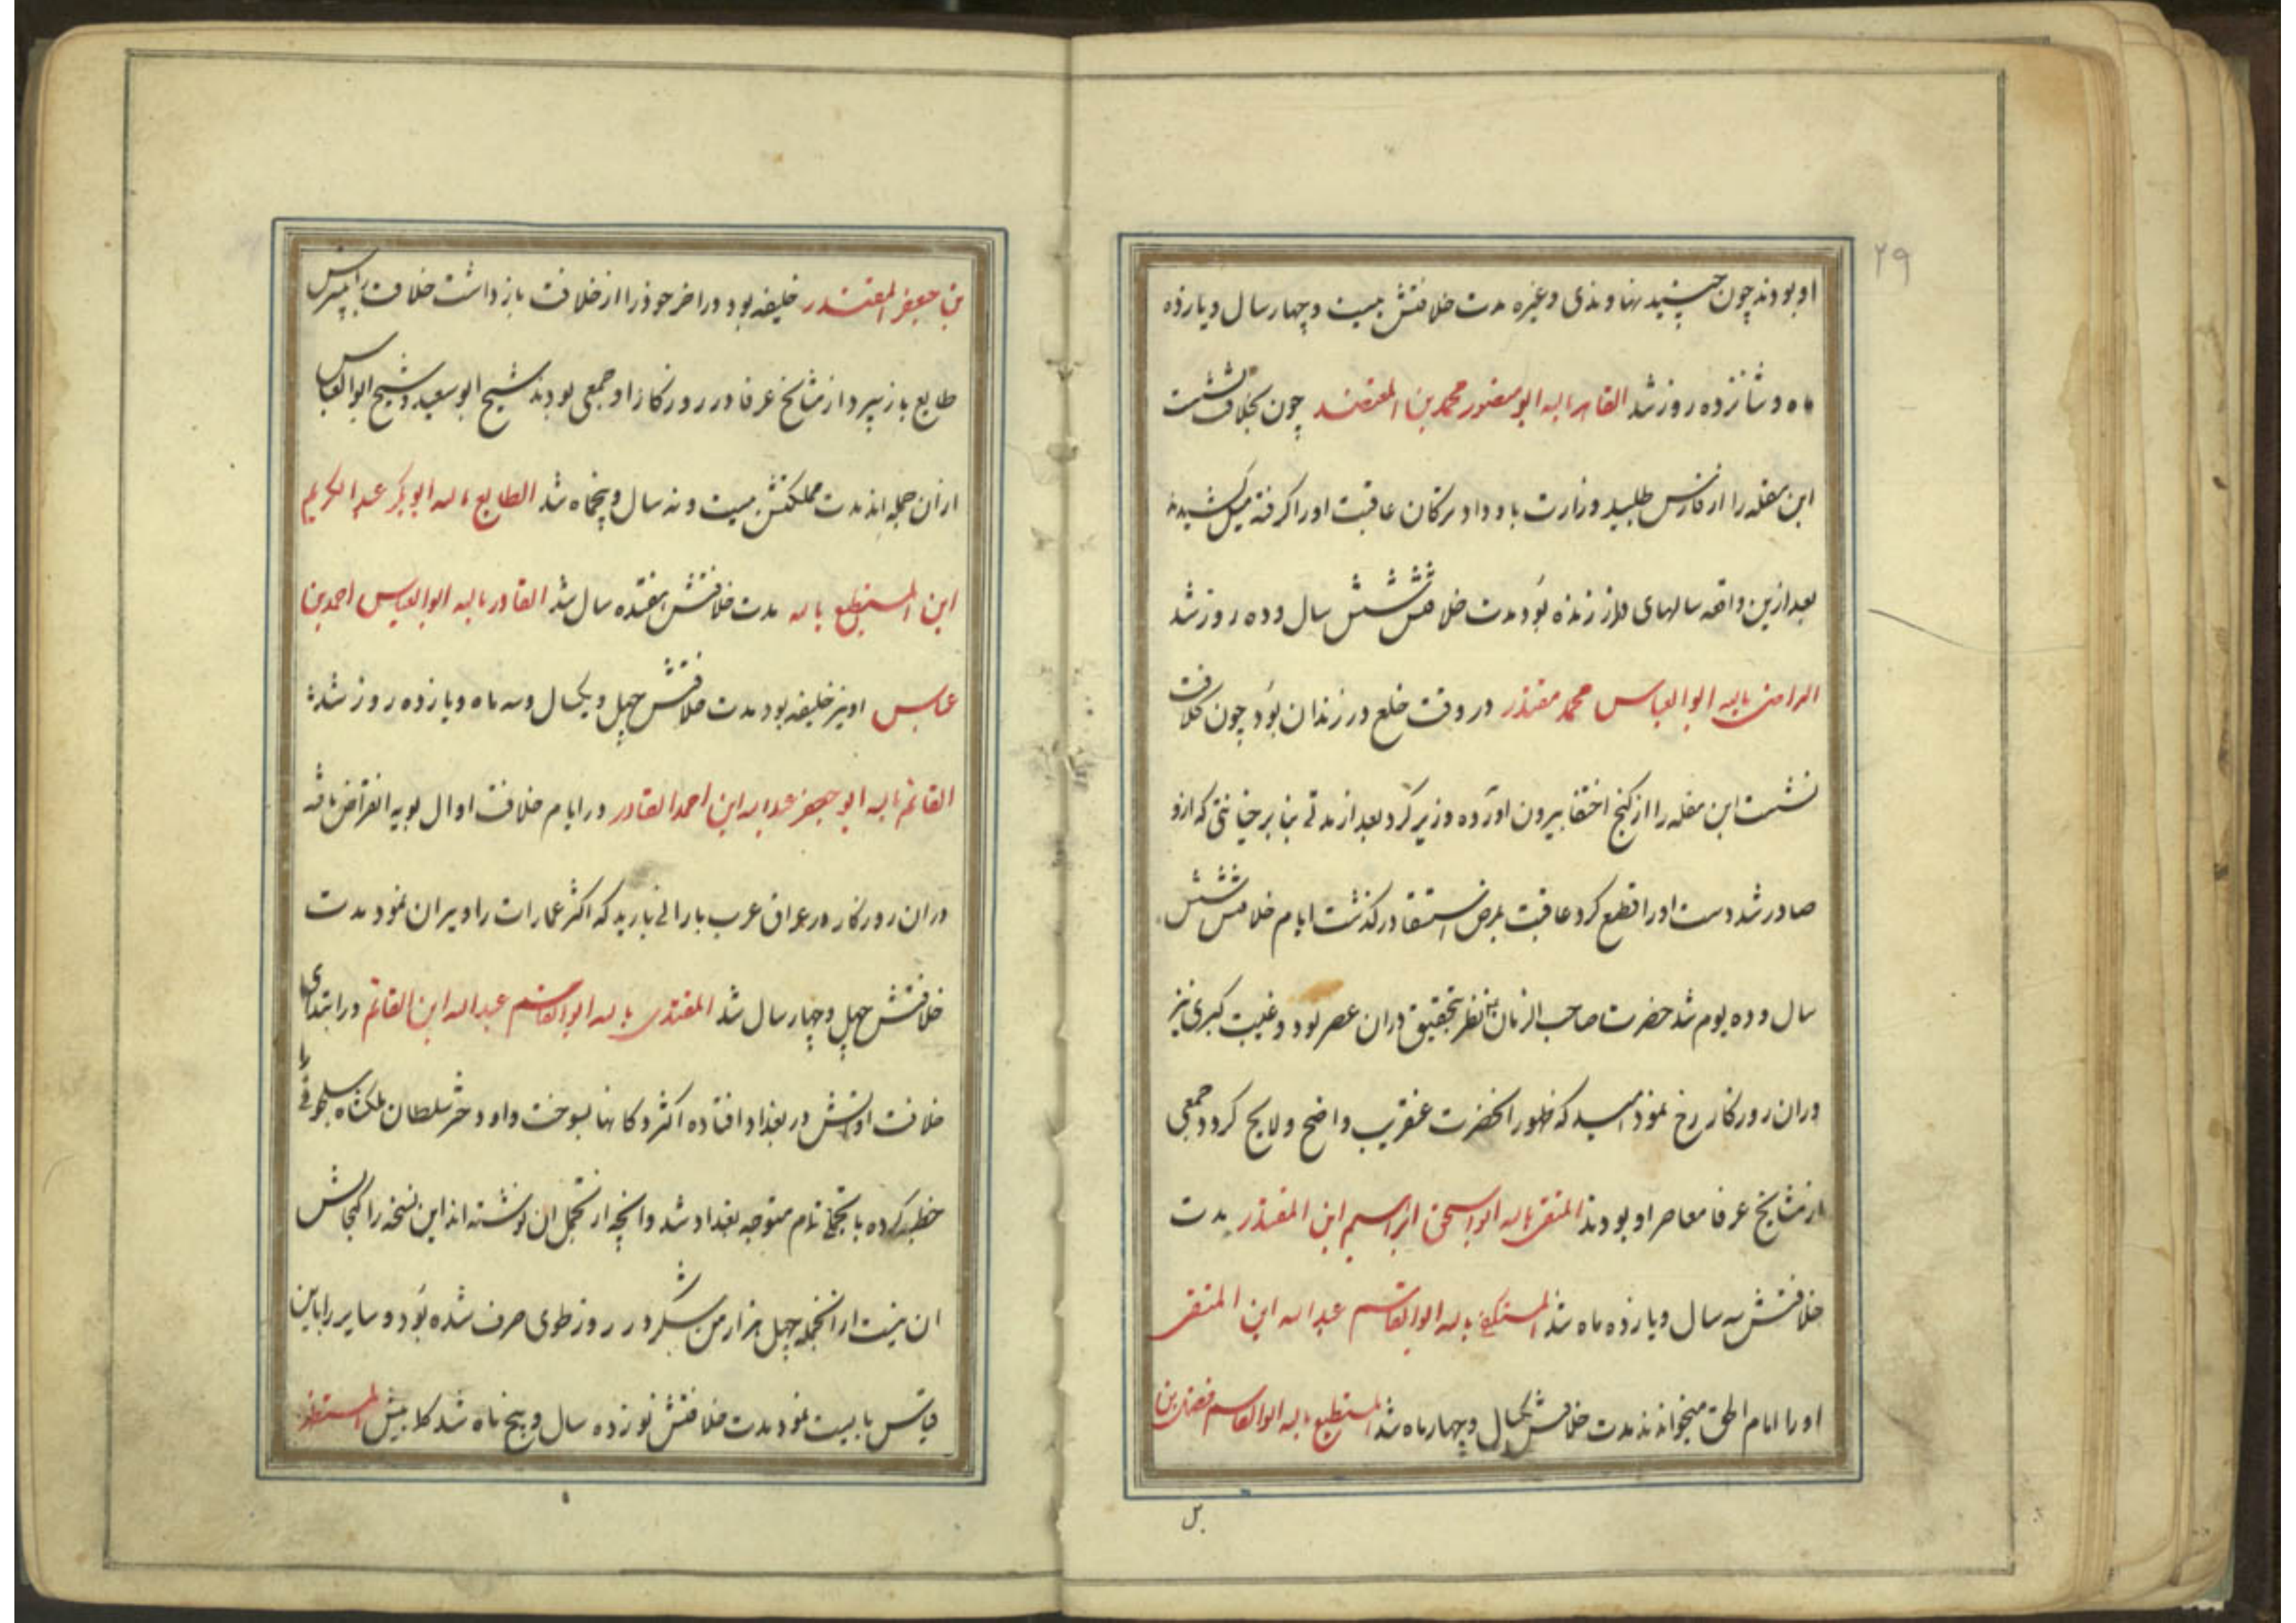 ۲۹
او بودند چون جنید نهاوندی و غیره مدت خلافتش بیست و چهار سال و یازده
ماه و شانزده روز شد القاهر بالله ابو منصور محمد بن المعتضد چون بخلافت نشست
ابن مقله را از فارس طلبید وزارت باو داد ترکان عاقبت او را گرفته میل کشیدند
بعد ازین واقعه سالهای دراز زنده بود مدت خلافتش شش سال و ده روز شد
الراضی بالله ابو العباس محمد مقتدر در وقت خلع در زندان بود چون بخلافت
نشست ابن مقله را از کنج اختفا بیرون آورده وزیر کرد بعد از مدتی بنا بر خیانتی که ازو
صادر شد دست او را قطع کرد عاقبت بمرض استسقا درگذشت ایام خلافتش شش
سال و ده یوم شد حضرت صاحب الزمان بنظر تحقیق دران عصر بود و غیبت کبری نیز
دران روزکار رخ نمود امید که ظهور انحضرت عنقریب واضح و لایح کردد جمعی
از مشایخ عرفا معاصر او بودند المتقی بالله ابو اسحق ابراهیم ابن المقتدر مدت
خلافتش سه سال و یازده ماه شد المستکفی بالله ابو القاسم عبدالله ابن المتقی
او را امام الحق میخوانند مدت خلافتش یکسال و چهار ماه شد المستطیع بالله ابو القاسم فضل بن
بن جعفر المقتدر خلیفه بود در اخر خود را از خلافت بازداشت خلافت را بپسرش
طایع باز سپرد از مشایخ عرفا در روزکار او جمعی بودند شیخ ابو سعید و شیخ ابو العباس
ازان جمله اند مدت مملکتش بیست و نه سال و پنجماه شد الطایع بالله ابو بکر عبد الکریم
ابن المستطیع بالله مدت خلافتش هفده سال شد القادر بالله ابو العباس احمد بن
عباس او نیز خلیفه بود مدت خلافتش چهل و یکسال و سه ماه و یازده روز شد
القائم بالله ابو جعفر عبدالله ابن احمد القادر در ایام خلافت او ال بویه انقراض یافته
دران روزکار در عراق عرب بارانی بارید که اکثر عمارات را ویران نمود مدت
خلافتش چهل و چهار سال شد المقتدی بالله ابو القاسم عبدالله ابن القائم در ابتدای
خلافت او اتش در بغداد افتاده اکثر دکانها بسوخت و او دختر سلطان ملکشاه سلجوقی را
خطبه کرده با تجملی تمام متوجه بغداد شد و انچه از تجمل ان نوشته اند این نسخه را گنجایش
ان نیست از انجمله چهل هزار من شکر در روز طوی صرف شده بود و سایر را باین
قیاس بایست نمود مدت خلافتش نوزده سال و پنج ماه شد المستظهر